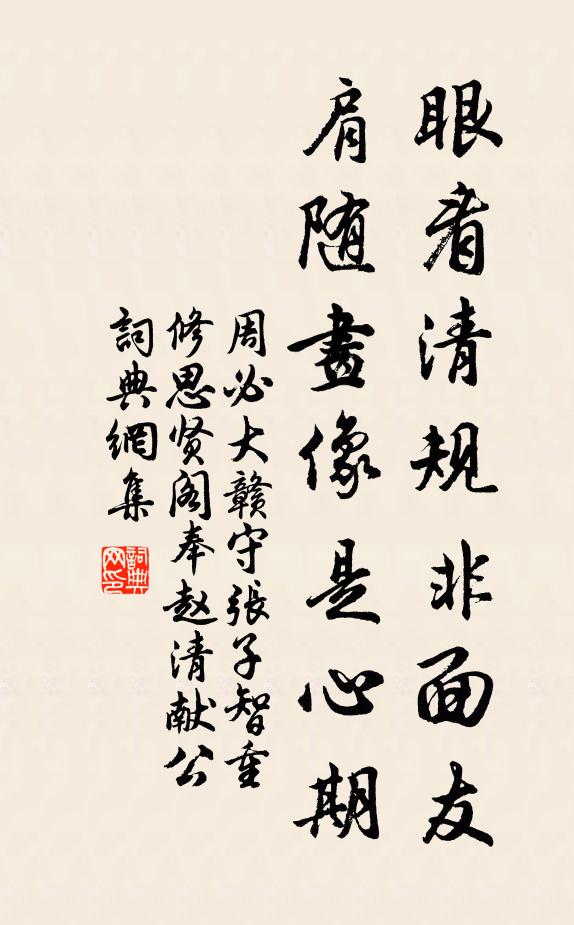 眼看清规非面友
肩随畫像是心期
周必大赣守張子智重
修思贤阁奉赵清献公
詞典網集
詞典网印